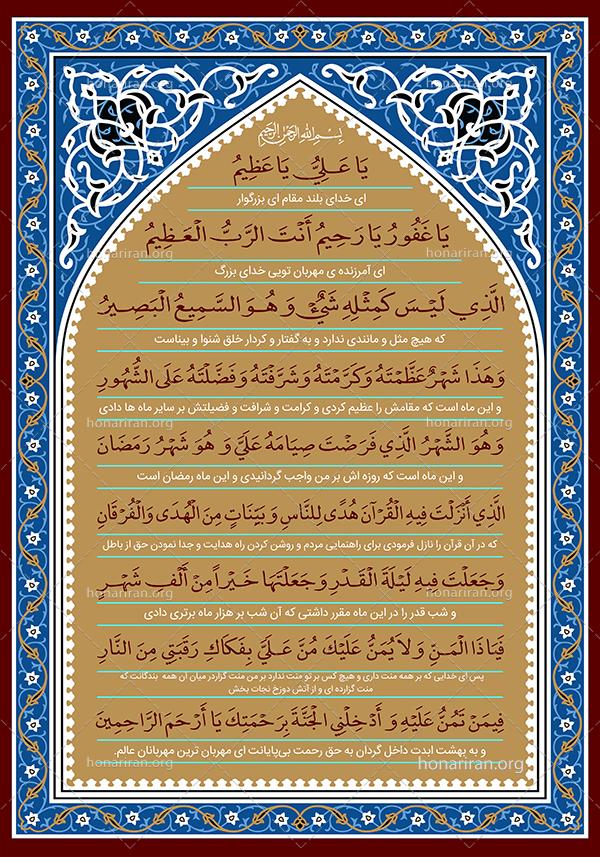 بِسْمِ اللهِ الرَّحْمنِ الرَّحِيمِ
يَا عَلِيُّ يَا عَظِيمُ
ای خدای بلند مقام ای بزرگوار
يَا غَفُورُ يَا رَحِيمُ أَنْتَ الرَّبُّ الْعَظِيمُ
honariran.org
ای آمرزنده ی مهربان تویی خدای بزرگ
الَّذِي لَيْسَ كَمِثْلِهِ شَيْءٌ وَ هُوَ السَّمِيعُ الْبَصِيرُ
که هیچ مثل و مانندی ندارد و به گفتار و کردار خلق شنوا و بیناست
وَ هَذَا شَهْرٌ عَظَّمْتَهُ وَ كَرَّمْتَهُ وَ شَرَّفْتَهُ وَ فَضَّلْتَهُ عَلَى الشُّهُورِ
و این ماه است که مقامش را عظیم کردی و کرامت و شرافت و فضیلتش بر سایر ماه ها دادی
وَ هُوَ الشَّهْرُ الَّذِي فَرَضْتَ صِيَامَهُ عَلَيَّ وَ هُوَ شَهْرُ رَمَضَانَ
و این ماه است که روزه اش بر من واجب گردانیدی و این ماه رمضان است
الَّذِي أَنْزَلْتَ فِيهِ الْقُرْآنَ هُدًى لِلنَّاسِ وَ بَيِّنَاتٍ مِنَ الْهُدَى وَالْفُرْقَانِ
که در آن قرآن را نازل فرمودی برای راهنمایی مردم و روشن کردن راه هدایت و جدا نمودن حق از باطل
وَ جَعَلْتَ فِيهِ لَيْلَةَ الْقَدْرِ وَ جَعَلْتَهَا خَيْراً مِنْ أَلْفِ شَهْرٍ
و شب قدر را در این ماه مقرر داشتی که آن شب بر هزار ماه برتری دادی
فَيَا ذَا الْمَنِّ وَ لاَ يُمَنُّ عَلَيْكَ مُنَّ عَلَيَّ بِفَكَاكِ رَقَبَتِي مِنَ النَّارِ
پس ای خدایی که بر همه منت داری و هیچ کس بر تو منت ندارد بر من منت گزاردر میان آن همه بندگانت که
منت گزارده ای و از آتش دوزخ نجات بخش
فِيمَنْ تَمُنُّ عَلَيْهِ وَ أَدْخِلْنِي الْجَنَّةَ بِرَحْمَتِكَ يَا أَرْحَمَ الرَّاحِمِينَ
و به بهشت ابدت داخل گردان به حق رحمت بی‌پایانت ای مهربان ترین مهربانان عالم.
honariran.org